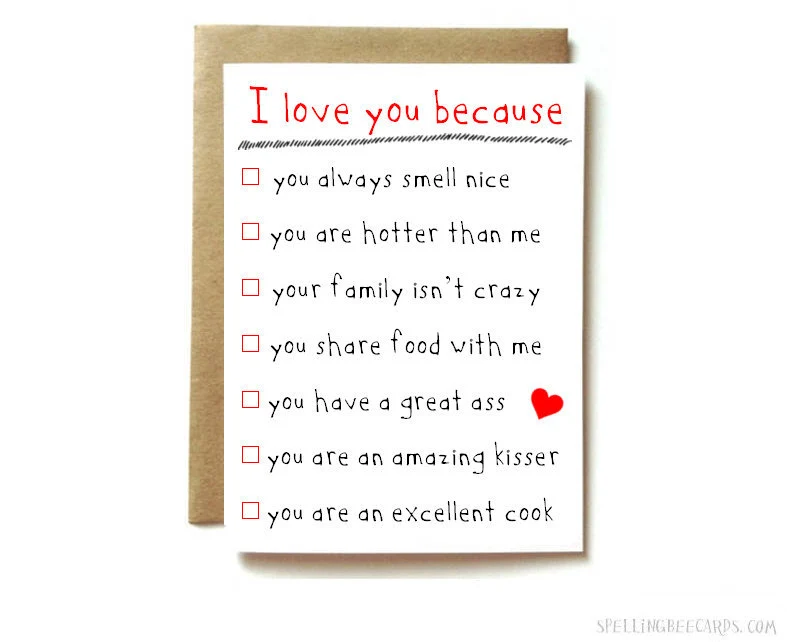 I love you because
you always smell nice
you are hotter than me
your family isn't crazy
you share food with me
you have a great ass
you are an amazing kisser
you are an excellent cook
SPELLINGBEECARDS.COM